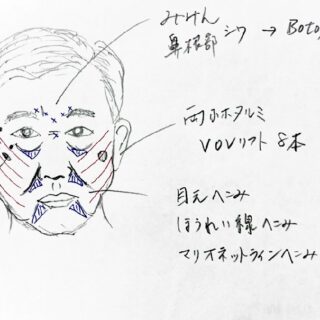 みけん
鼻根部 シワ → Boto
両ホホタルミ
VOVリフト 8本
目元ヘこみ
ほうれい線へこみ
マリオネットラインへこみ